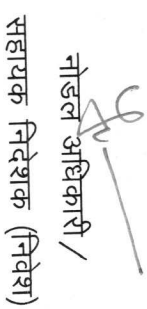 नोडल अधिकारी /
सहायक निदेशक (निवेश)